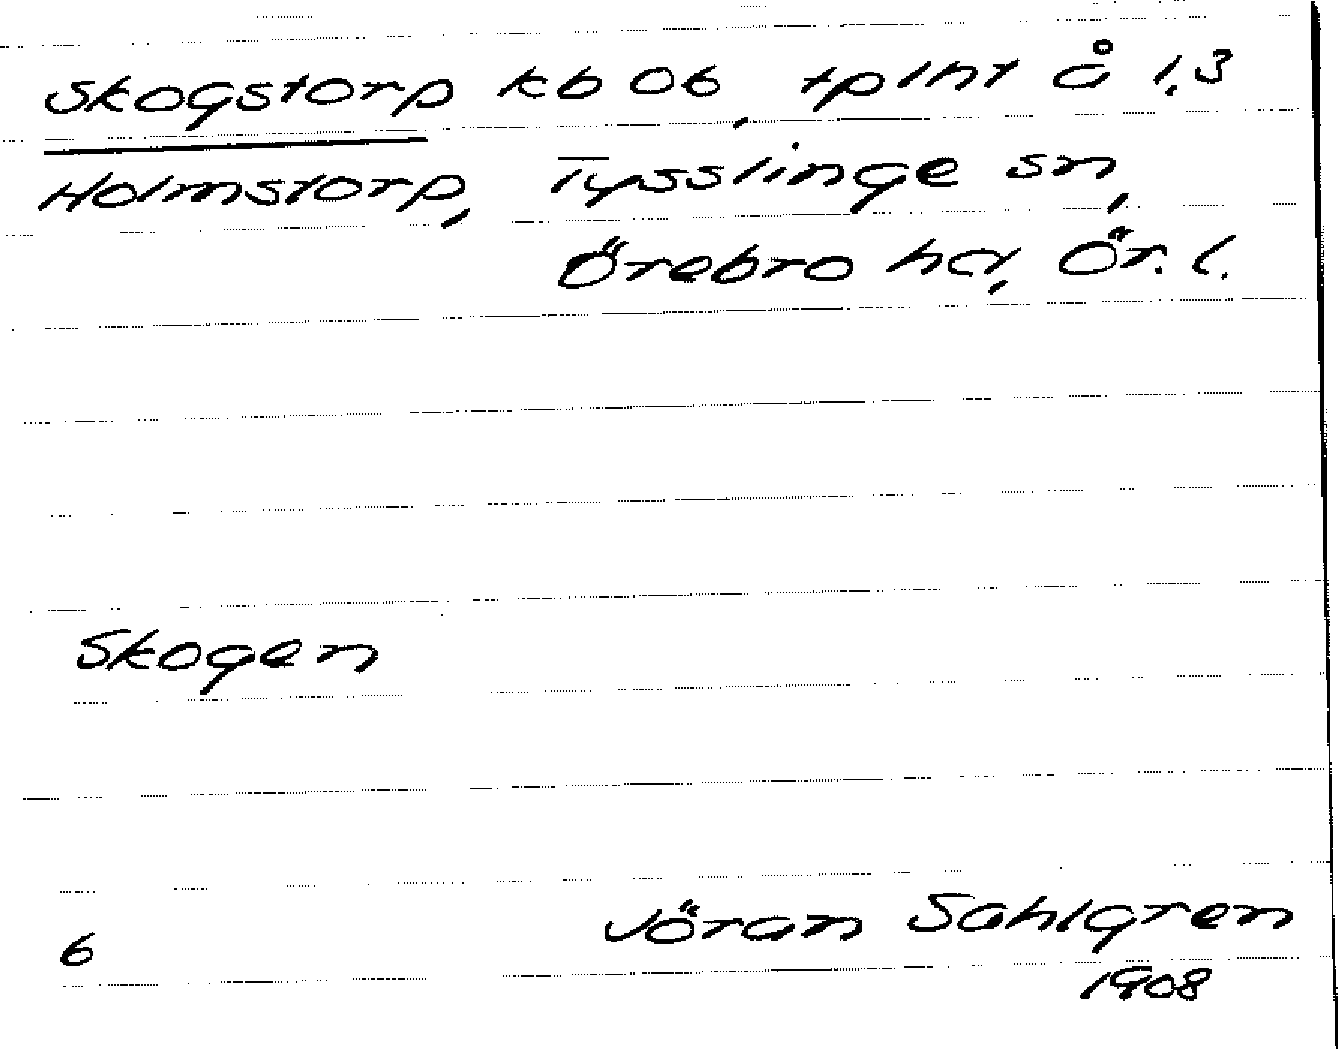 Skogstorp kb 06, tplht å 1,3
Holmstorp, Tysslinge sn,
Örebro hd, Ör. l.
Skogen
6
Jöran Sahlgren
1908